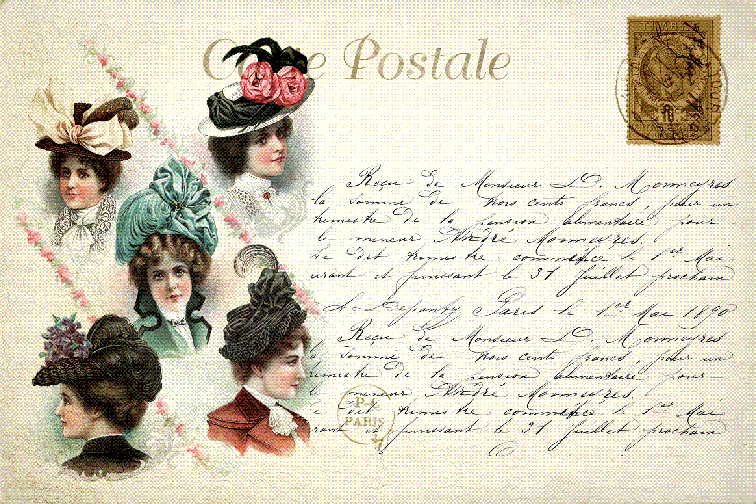 Carte Postale
Reçu de Monsieur D. Monmeyres
la somme de trois cents francs, pour un
trimestre de la pension alimentaire pour
le mineur André Monmeyres.
Le dit trimestre commence le 1er Mai
courant et finissant le 31 juillet prochain
Paris le 1er Mai 1890
Reçu de Monsieur D. Monmeyres
la somme de trois cents francs, pour un
trimestre de la pension alimentaire pour
le mineur André Monmeyres.
Le dit trimestre commence le 1er Mai
courant et finissant le 31 juillet prochain
PARIS